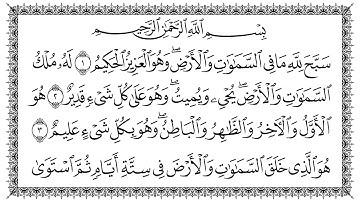 بِسْمِ اللَّهِ الرَّحْمَٰنِ الرَّحِيمِ
سَبَّحَ لِلَّهِ مَا فِي السَّمَاوَاتِ وَالْأَرْضِ ۖ وَهُوَ الْعَزِيزُ الْحَكِيمُ ١ لَهُ مُلْكُ
السَّمَاوَاتِ وَالْأَرْضِ ۖ يُحْيِي وَيُمِيتُ ۖ وَهُوَ عَلَىٰ كُلِّ شَيْءٍ قَدِيرٌ ٢ هُوَ
الْأَوَّلُ وَالْآخِرُ وَالظَّاهِرُ وَالْبَاطِنُ ۖ وَهُوَ بِكُلِّ شَيْءٍ عَلِيمٌ ٣
هُوَ الَّذِي خَلَقَ السَّمَاوَاتِ وَالْأَرْضَ فِي سِتَّةِ أَيَّامٍ ثُمَّ اسْتَوَىٰ